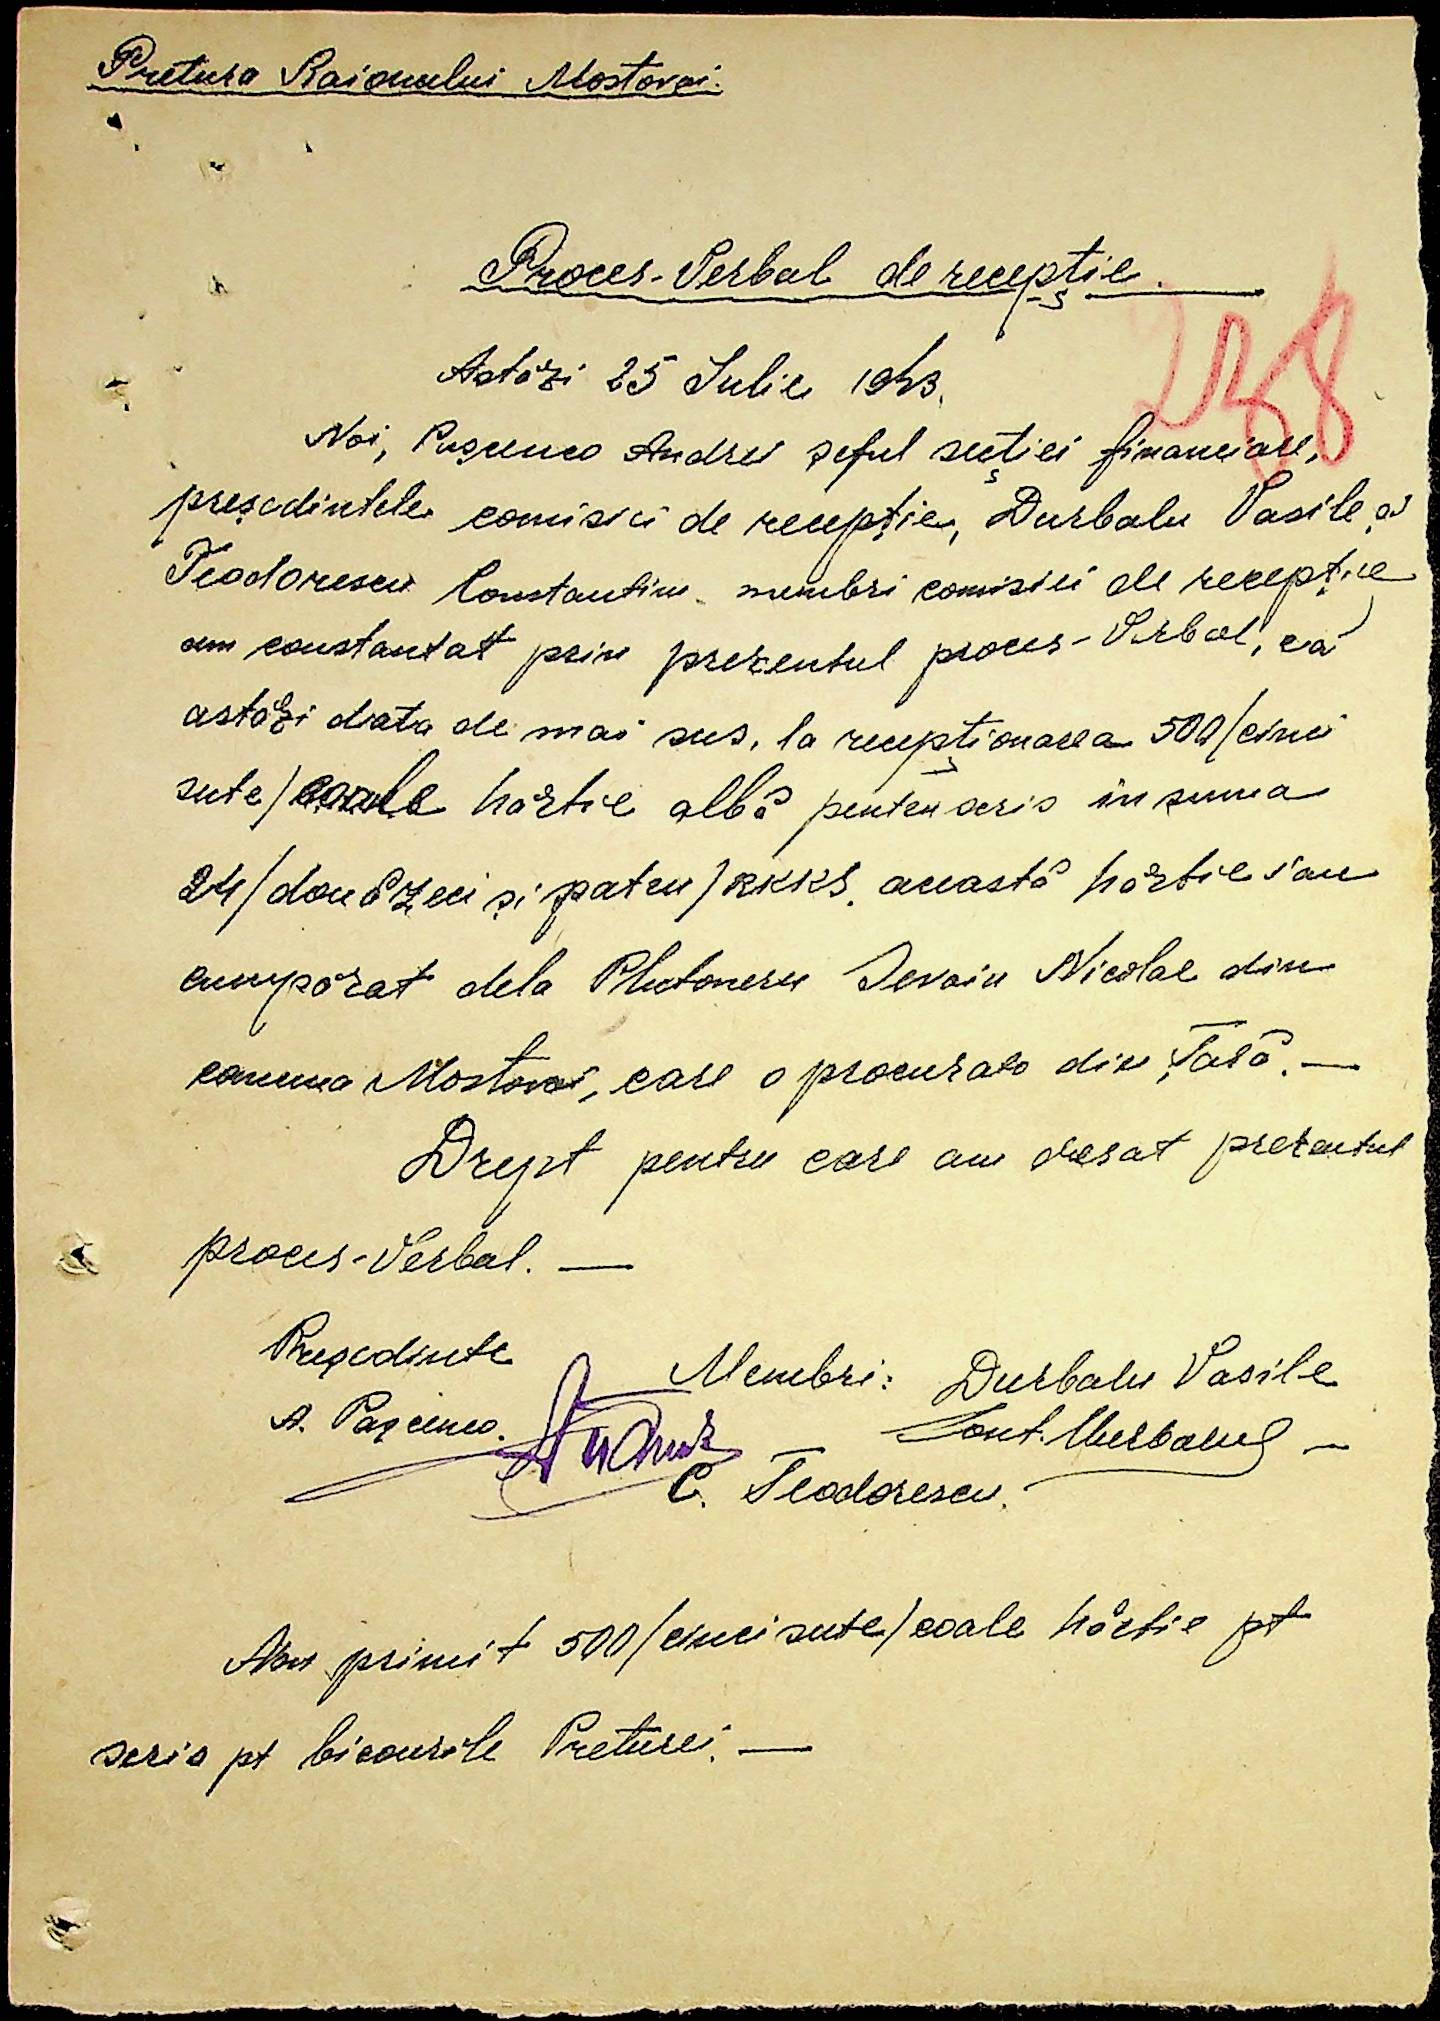 Pretura Raionului Mostovoi.
Proces-Verbal de recepție.
238
Astăzi 25 Iulie 1943.
Noi, Pașcenco Andrei șeful secției financiare,
președintele comisiei de recepție, Durbalu Vasile și
Teodorescu Constantin membri comisiei de recepție
am constantat prin prezentul proces-Verbal, că
astăzi data de mai sus, la recepționarea 500/cinci
sute/coale hârtie albă pentru scris în suma
24/două zeci și patru/RKKS. această hârtie s'au
cumpărat dela Plutoneru Nicolae din
comuna Mostovoi, care o procurato din Țară. —
Drept pentru care am dresat prezentul
proces-Verbal. —
Președinte
Membri: Durbalu Vasile
A. Pașcenco.
C. Teodorescu.
Am primit 500/cinci sute/coale hârtie pt
scris pt birourile Preturei. —